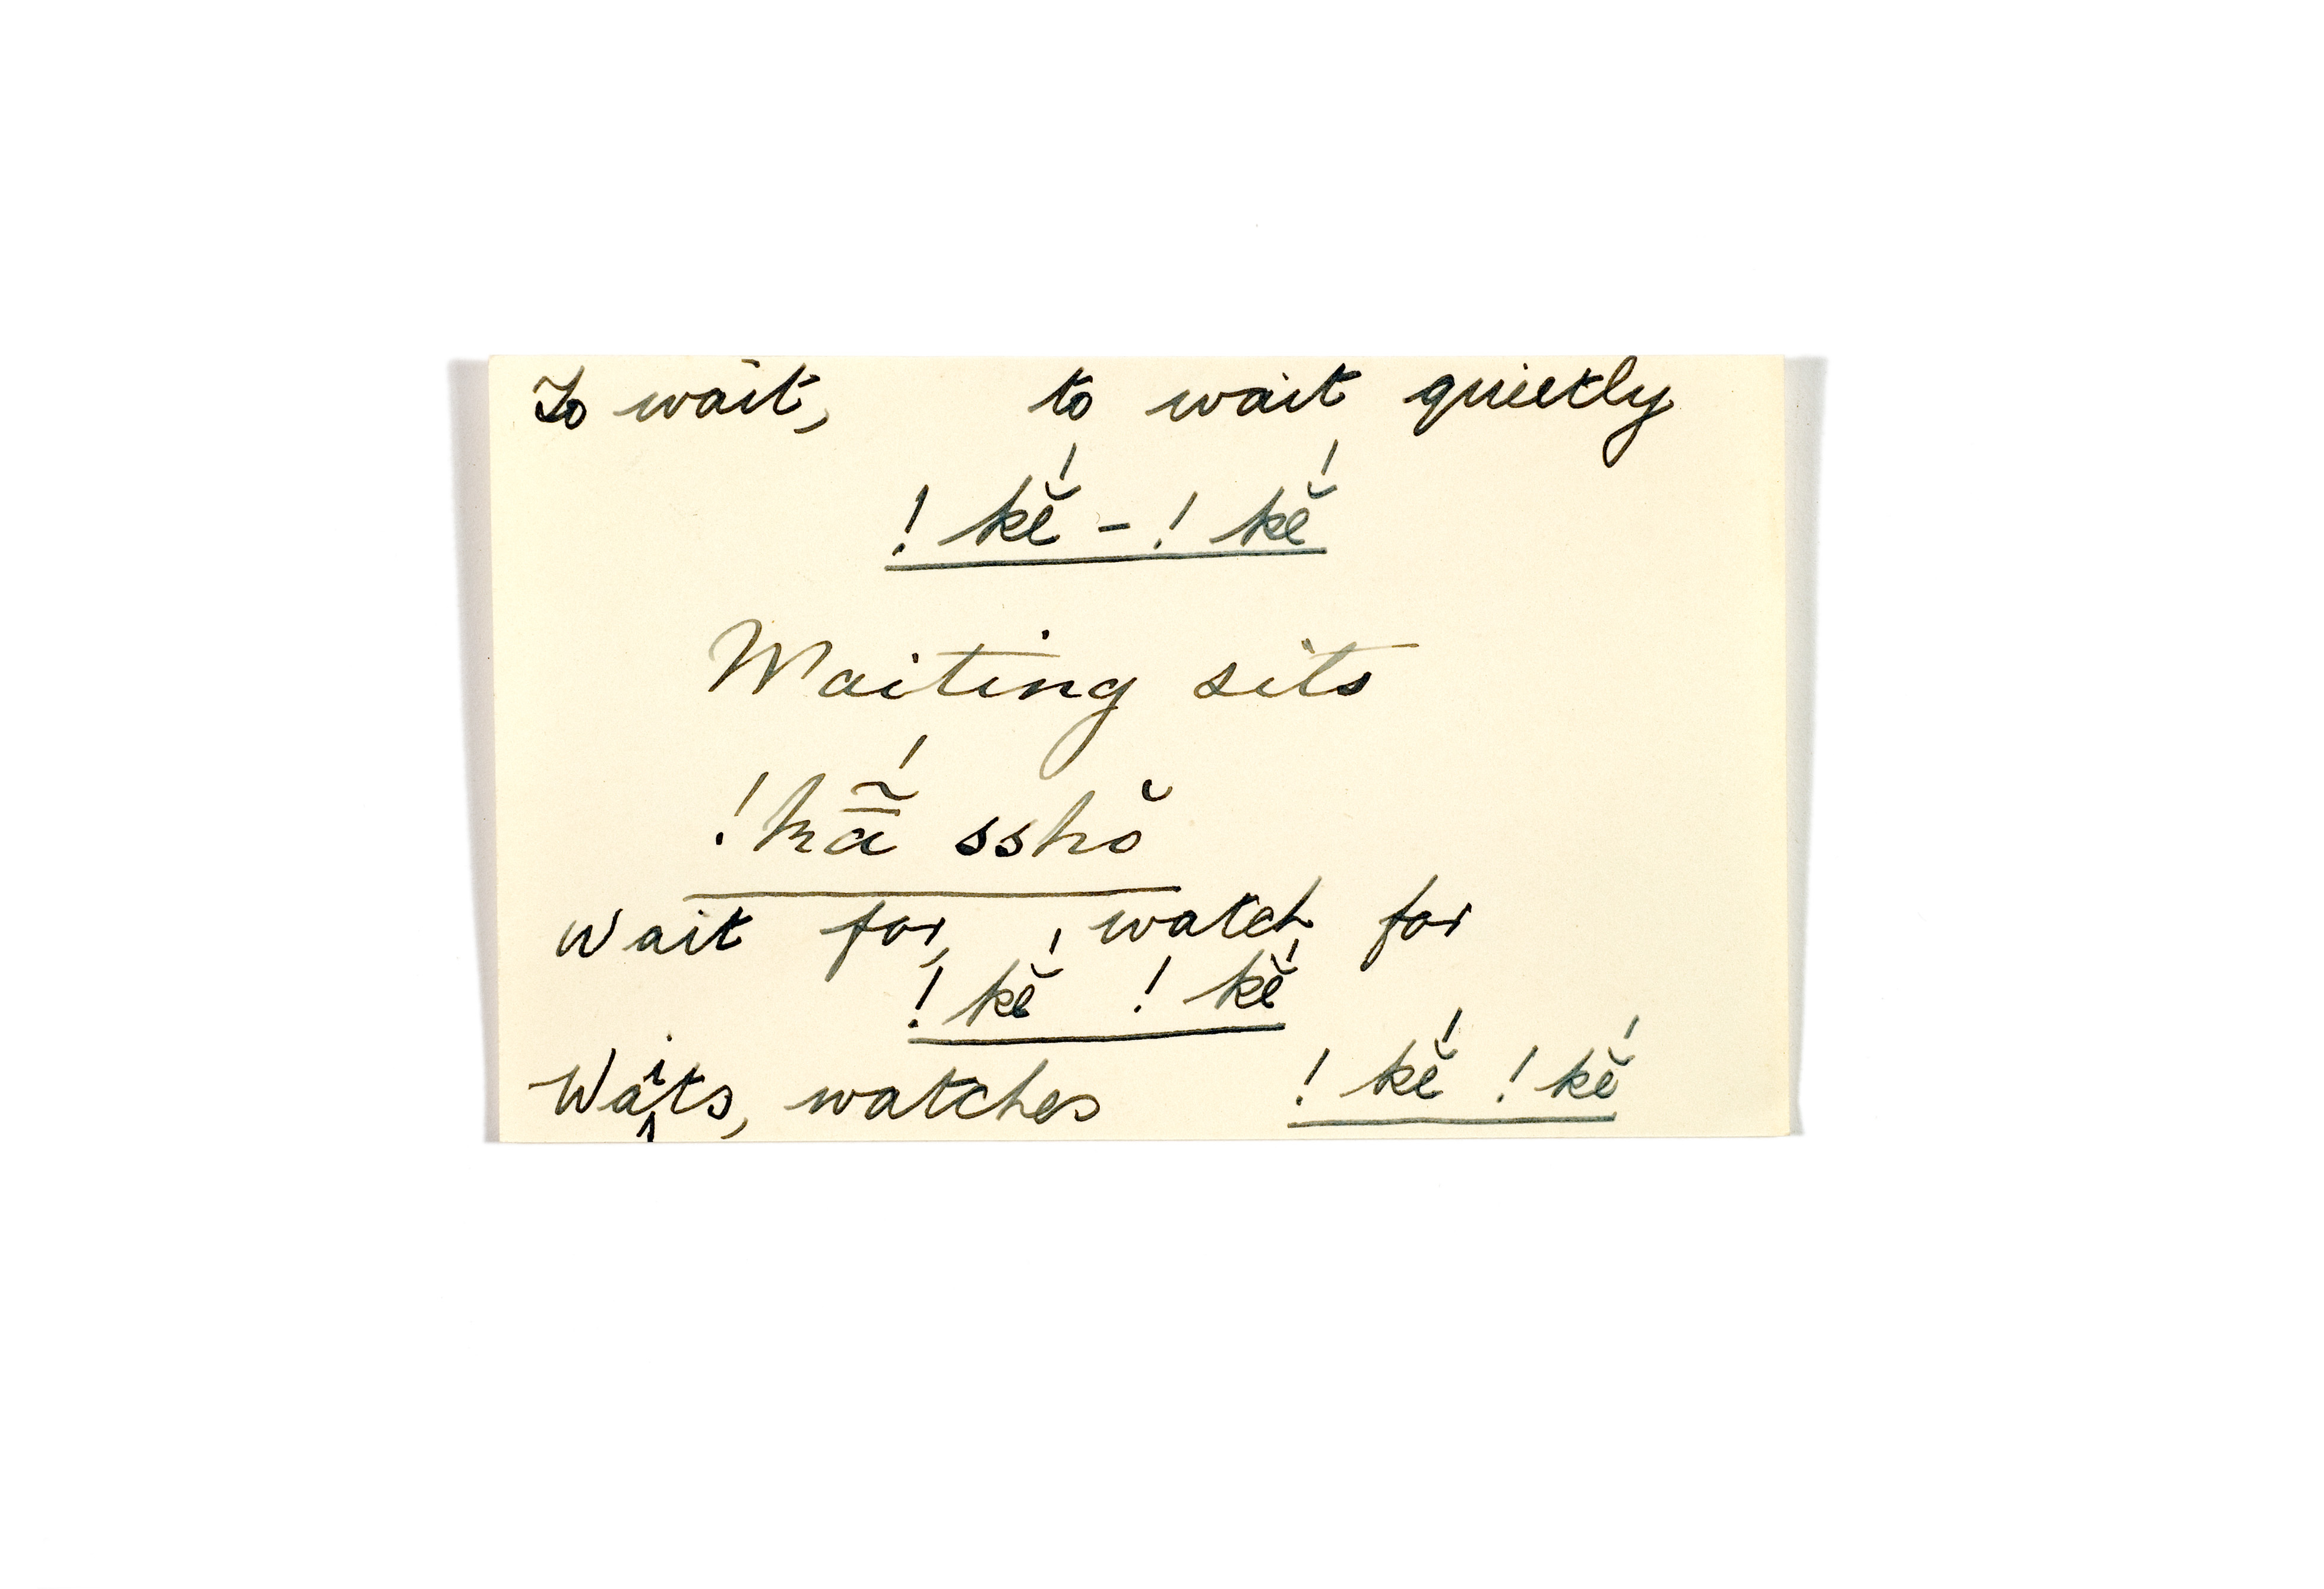 To wait, to wait quietly
!kĕ́ - !kĕ́
Waiting sits
!kā̃́ sshŏ
Wait for, watch for
!kĕ́ !kĕ́
Waits, watches !kĕ́ !kĕ́